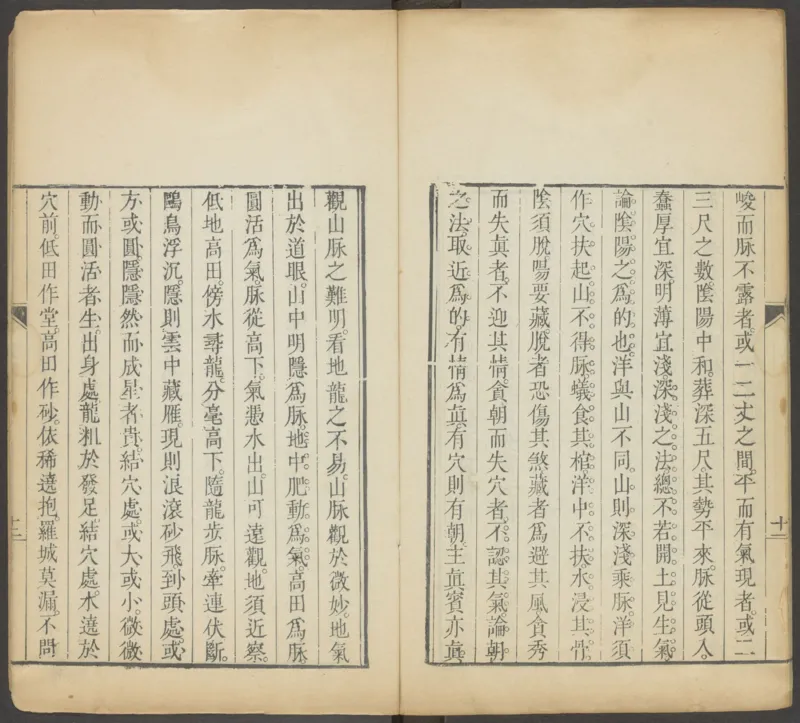 峻而脉不露者或一二丈之間平而有氣現者或二
三尺之數隂陽中和葬深五尺其勢平來脉從頭入
蠢厚宜深明薄宜淺深淺之法總不若開土見生氣
論隂陽之爲的也洋與山不同山則深淺乘脉洋須
作穴扶起山不得脉蟻食其棺洋中不扶水浸其骨
隂須脫陽要藏脫者恐傷其煞藏者爲避其風貪秀
而失眞者不迎其情貪朝而失穴者不認其氣論朝
之法取近爲的有情爲眞有穴則有朝主眞賓亦眞
十一
觀山脉之難明看地龍之不易山脉觀於微妙地氣
出於道眼山中明隱爲脉地中肥動爲氣高田爲脉
圓活爲氣脉從高下氣憑水出山可遠觀地須近察
低地高田傍水尋龍分毫高下隨龍步脉牽連伏斷
鷗鳥浮沉隱則雲中藏雁現則浪滾砂飛到頭處或
方或圓隱隱然而成星者貴結穴處或大或小微微
動而圓活者生出身處龍粗於發足結穴處水遶於
穴前低田作堂高田作砂依稀遶抱羅城莫漏不問
十二